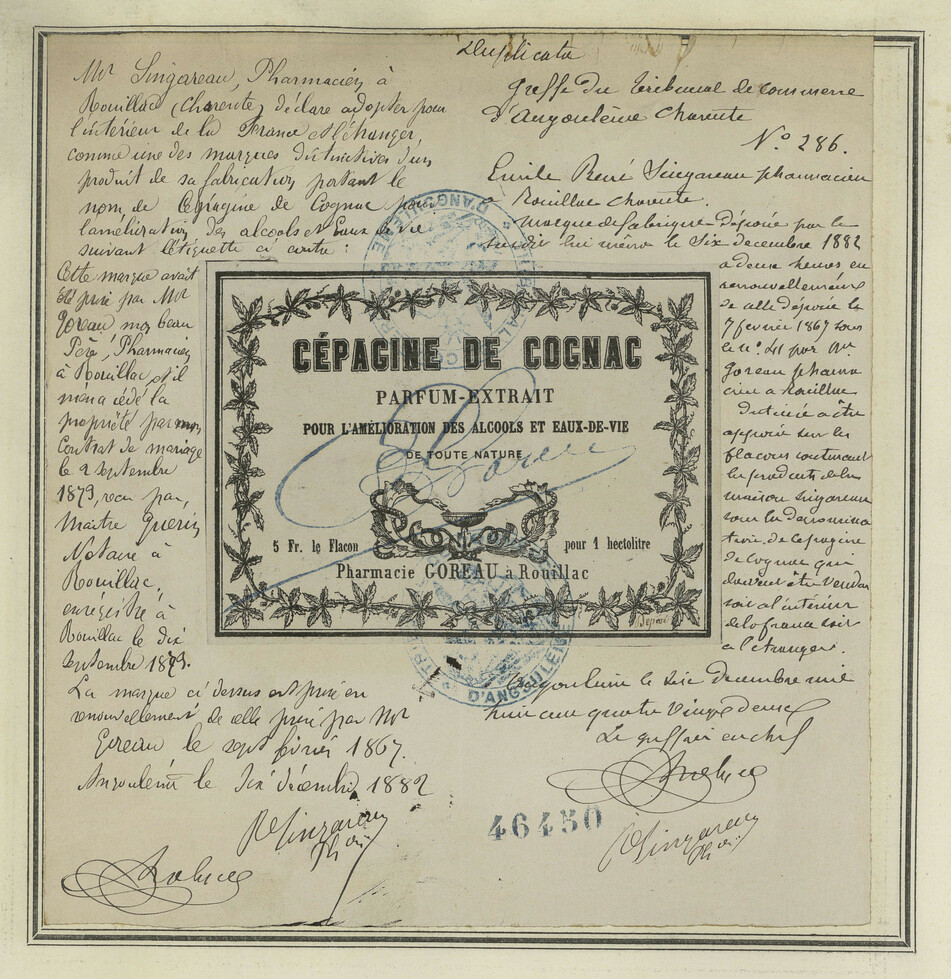 Duplicata
Mr Singareau, Pharmacien à
Rouillac (Charente) déclare adopter pour
l'intérieur de la France et l'étranger,
comme une des marques distinctives d'un
produit de sa fabrication portant le
nom de Cépagine de Cognac pour
l'amélioration des alcools et Eaux de vie
suivant l'étiquette ci contre :
Cette marque avait
été prise par Mr
Goreau mon beau
Père, Pharmacien
à Rouillac, et il
m'en a cédé la
propriété par mon
Contrat de mariage
le 2 septembre
1879, reçu par
Maître Guérin
Notaire à
Rouillac,
enregistré à
Rouillac le dix
septembre 1879.
La marque ci dessus est prise en
renouvellement de celle prise par Mr
Goreau le sept février 1867.
Angoulême le Six décembre 1882
R Singareau
Phcien
CÉPAGINE DE COGNAC
PARFUM-EXTRAIT
POUR L'AMÉLIORATION DES ALCOOLS ET EAUX-DE-VIE
DE TOUTE NATURE
Goreau
5 Fr. le Flacon
pour 1 hectolitre
Pharmacie GOREAU à Rouillac
Déposé
D'ANGOULEME
D'ANGOULEME
Greffe du Tribunal de commerce
d'Angoulême Charente
N° 286.
Emile René Singareau pharmacien
à Rouillac Charente.
Marque de fabrique Déposée par le
susdit lui même le Six decembre 1882
a deux heures en
renouvellement
de celle déposée le
7 fevrier 1867 sous
le n° 41 par Mr
Goreau pharma
cien a Rouillac
Destinée a être
apposée sur les
flacons contenant
les produits de la
maison Singareau
sous la denomina
tion de Cepagine
de Cognac qui
doivent être vendus
soit a l'intérieur
de la france soit
a l'etranger.
Angoulême le six Decembre mil
huit cent quatre vingt deux
Le greffier en chef
46450
R Singareau
Phcien